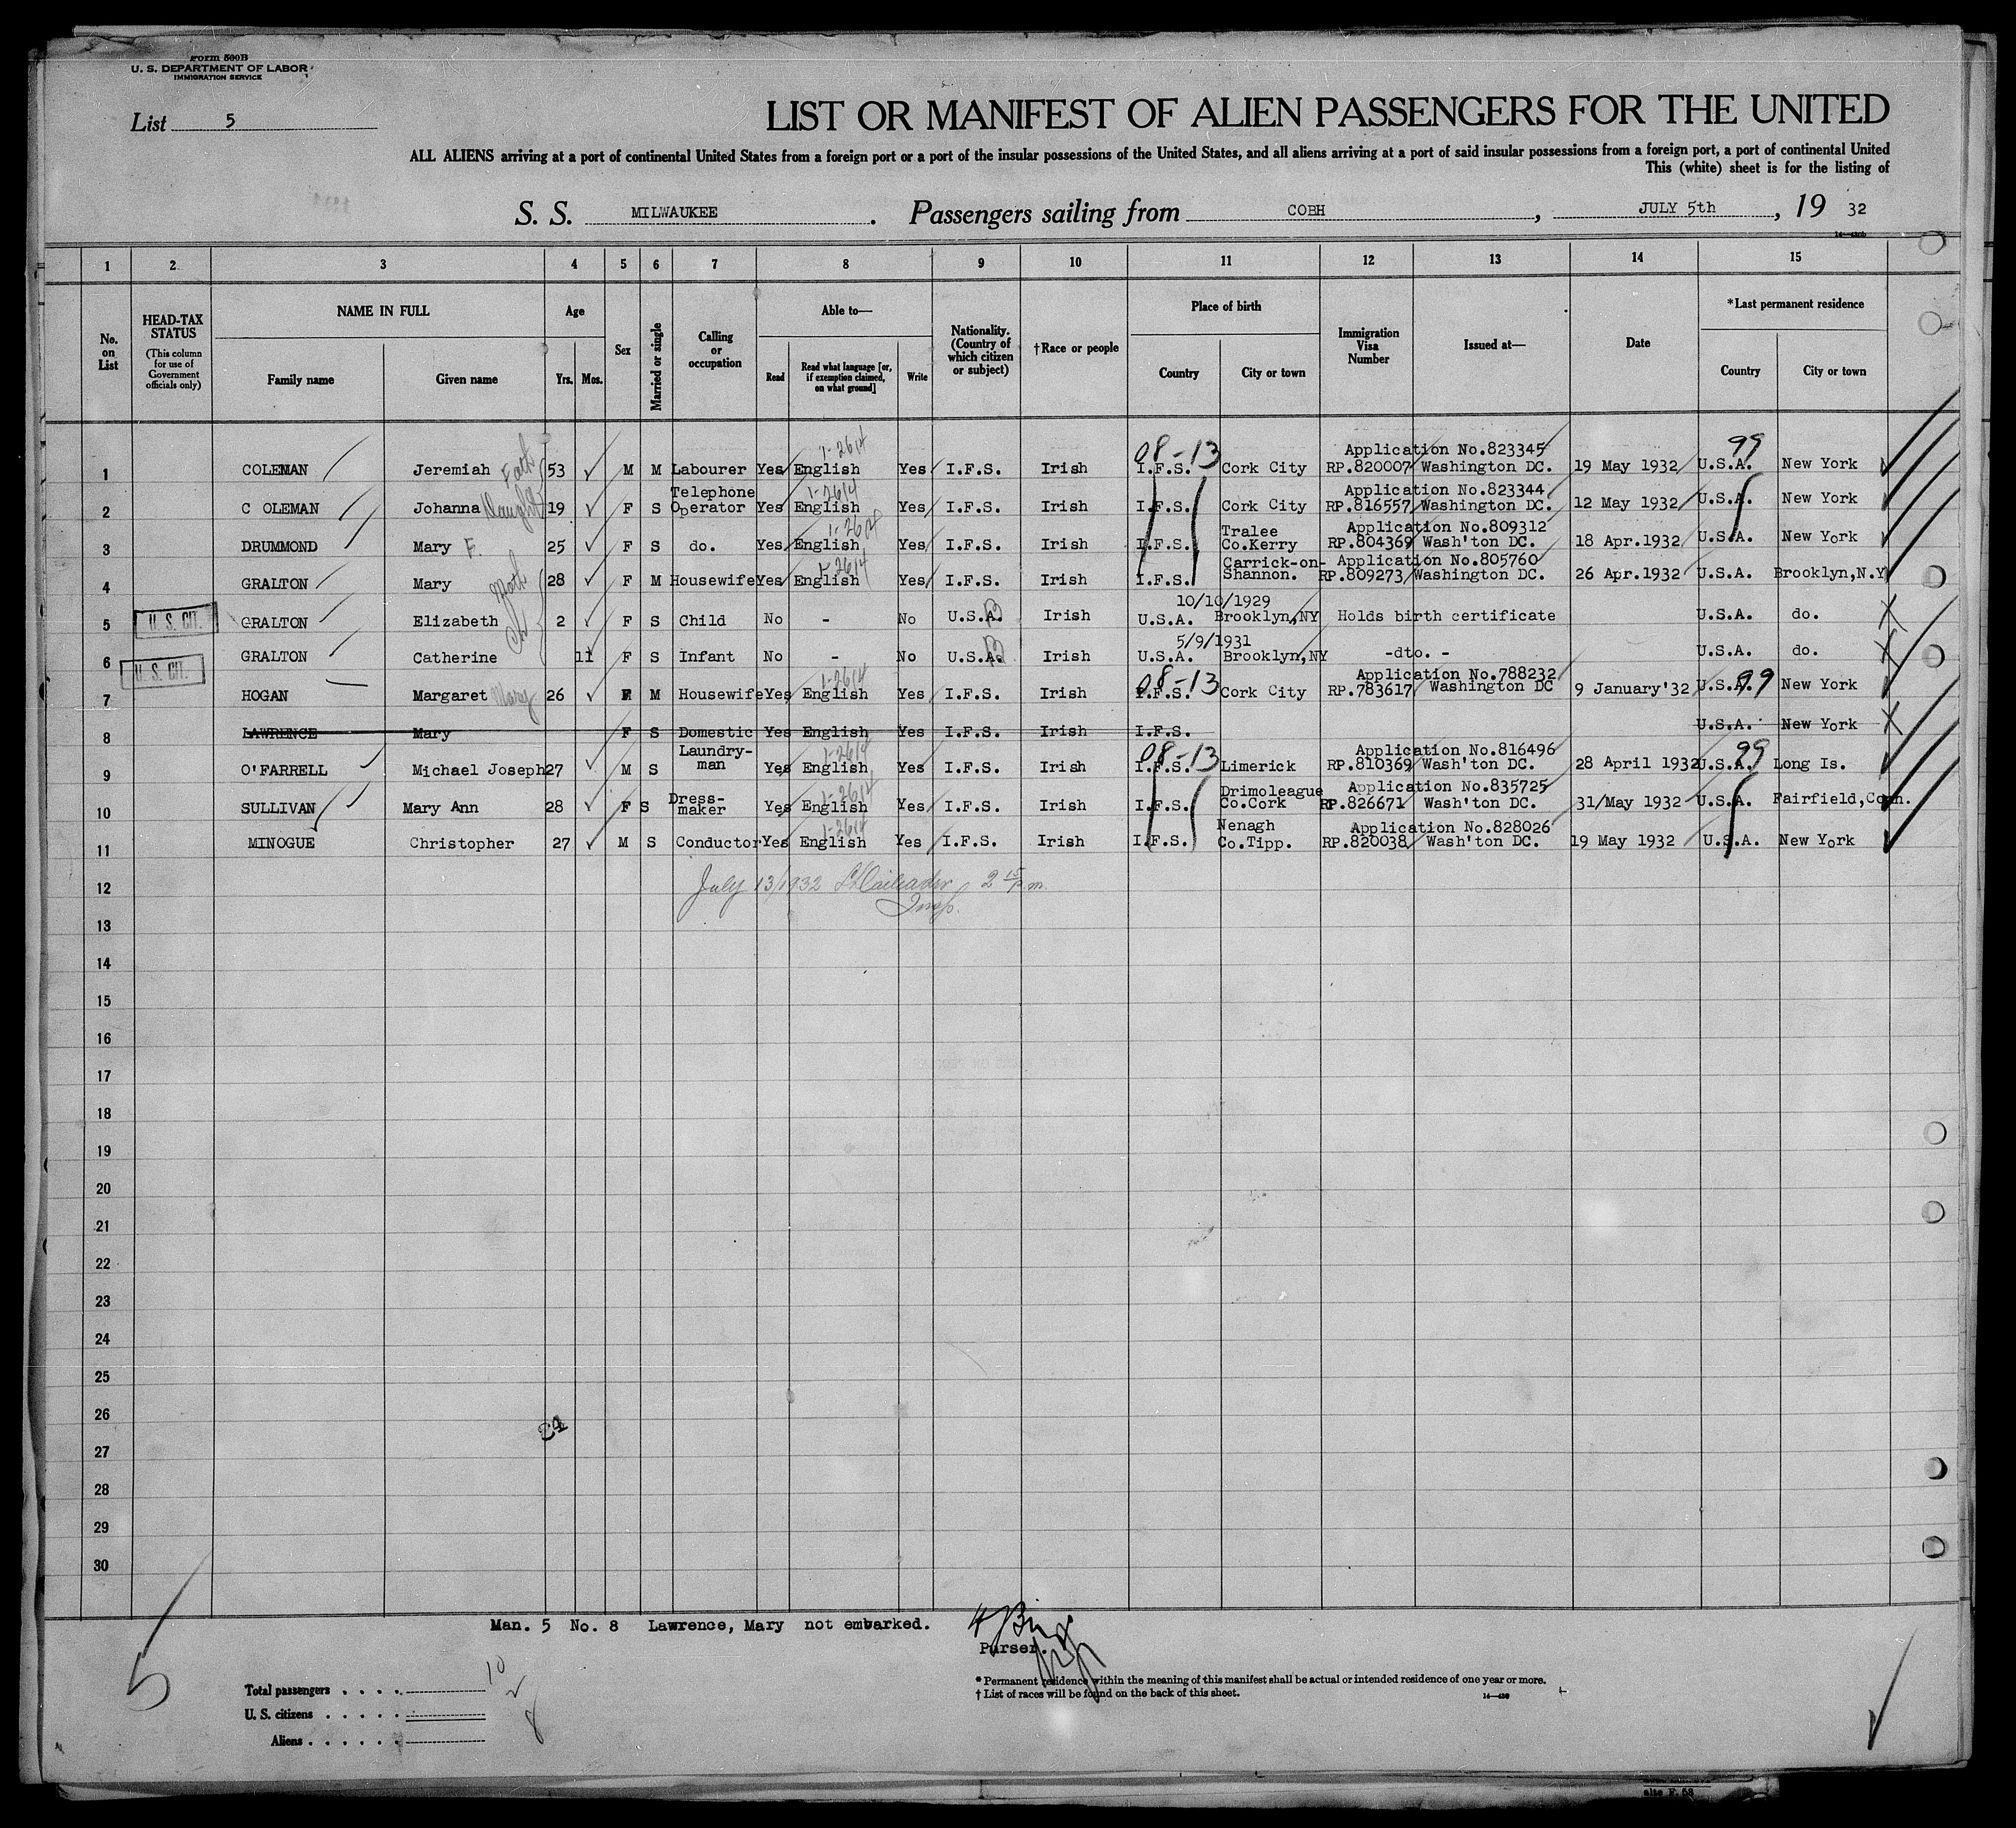 Form 500B
U. S. DEPARTMENT OF LABOR
IMMIGRATION SERVICE
List 5
LIST OR MANIFEST OF ALIEN PASSENGERS FOR THE UNITED
ALL ALIENS arriving at a port of continental United States from a foreign port or a port of the insular possessions of the United States, and all aliens arriving at a port of said insular possessions from a foreign port, a port of continental United
This (white) sheet is for the listing of
S. S. MILWAUKEE . Passengers sailing from COBH , JULY 5th , 19 32
1 2 3 4 5 6 7 8 9 10 11 12 13 14 15
No. on List
HEAD-TAX STATUS (This column for use of Government officials only)
NAME IN FULL
Family name Given name
Age
Yrs. Mos.
Sex
Married or single
Calling or occupation
Able to—
Read Read what language [or, if exemption claimed, on what ground] Write
Nationality. (Country of which citizen or subject)
†Race or people
Place of birth
Country City or town
Immigration Visa Number
Issued at—
Date
*Last permanent residence
Country City or town
08-13 Application No.823345 99
1 COLEMAN Jeremiah Fath 53 M M Labourer Yes English Yes I.F.S. Irish I.F.S. Cork City RP.820007 Washington DC. 19 May 1932 U.S.A. New York
Telephone Application No.823344
2 C OLEMAN Johanna Daught 19 F S Operator Yes English Yes I.F.S. Irish I.F.S. Cork City RP.816557 Washington DC. 12 May 1932 U.S.A. New York
Tralee Application No.809312
3 DRUMMOND Mary F. 25 F S do. Yes English Yes I.F.S. Irish I.F.S. Co.Kerry RP.804369 Wash'ton DC. 18 Apr.1932 U.S.A. New York
Carrick-on- Application No.805760
4 GRALTON Mary Moth 28 F M Housewife Yes English Yes I.F.S. Irish I.F.S. Shannon. RP.809273 Washington DC. 26 Apr.1932 U.S.A. Brooklyn,N.Y
10/10/1929
5 U. S. CIT. GRALTON Elizabeth Ch 2 F S Child No - No U.S.A. Irish U.S.A. Brooklyn,NY Holds birth certificate U.S.A. do.
5/9/1931
6 U. S. CIT. GRALTON Catherine 11 F S Infant No - No U.S.A. Irish U.S.A. Brooklyn,NY -dto. - U.S.A. do.
08-13 Application No.788232
7 HOGAN Margaret Mary 26 F M Housewife Yes English Yes I.F.S. Irish I.F.S. Cork City RP.783617 Washington DC 9 January'32 U.S.A. 99 New York
8 LAWRENCE Mary F S Domestic Yes English Yes I.F.S. Irish I.F.S. U.S.A. New York
Laundry- 08-13 Application No.816496 99
9 O'FARRELL Michael Joseph 27 M S man Yes English Yes I.F.S. Irish I.F.S. Limerick RP.810369 Wash'ton DC. 28 April 1932 U.S.A. Long Is.
Dress- Drimoleague Application No.835725
10 SULLIVAN Mary Ann 28 F S maker Yes English Yes I.F.S. Irish I.F.S. Co.Cork RP.826671 Wash'ton DC. 31/May 1932 U.S.A. Fairfield,Conn.
Nenagh Application No.828026
11 MINOGUE Christopher 27 M S Conductor Yes English Yes I.F.S. Irish I.F.S. Co.Tipp. RP.820038 Wash'ton DC. 19 May 1932 U.S.A. New York
12 July 13/1932 2 15 p.m.
Insp.
13
14
15
16
17
18
19
20
21
22
23
24
25
26
27
28
29
30
Man. 5 No. 8 Lawrence, Mary not embarked.
Purser.
5
Total passengers . . . . 10
U. S. citizens . . . . . 2
Aliens . . . . . . 8
* Permanent residence within the meaning of this manifest shall be actual or intended residence of one year or more.
† List of races will be found on the back of this sheet.